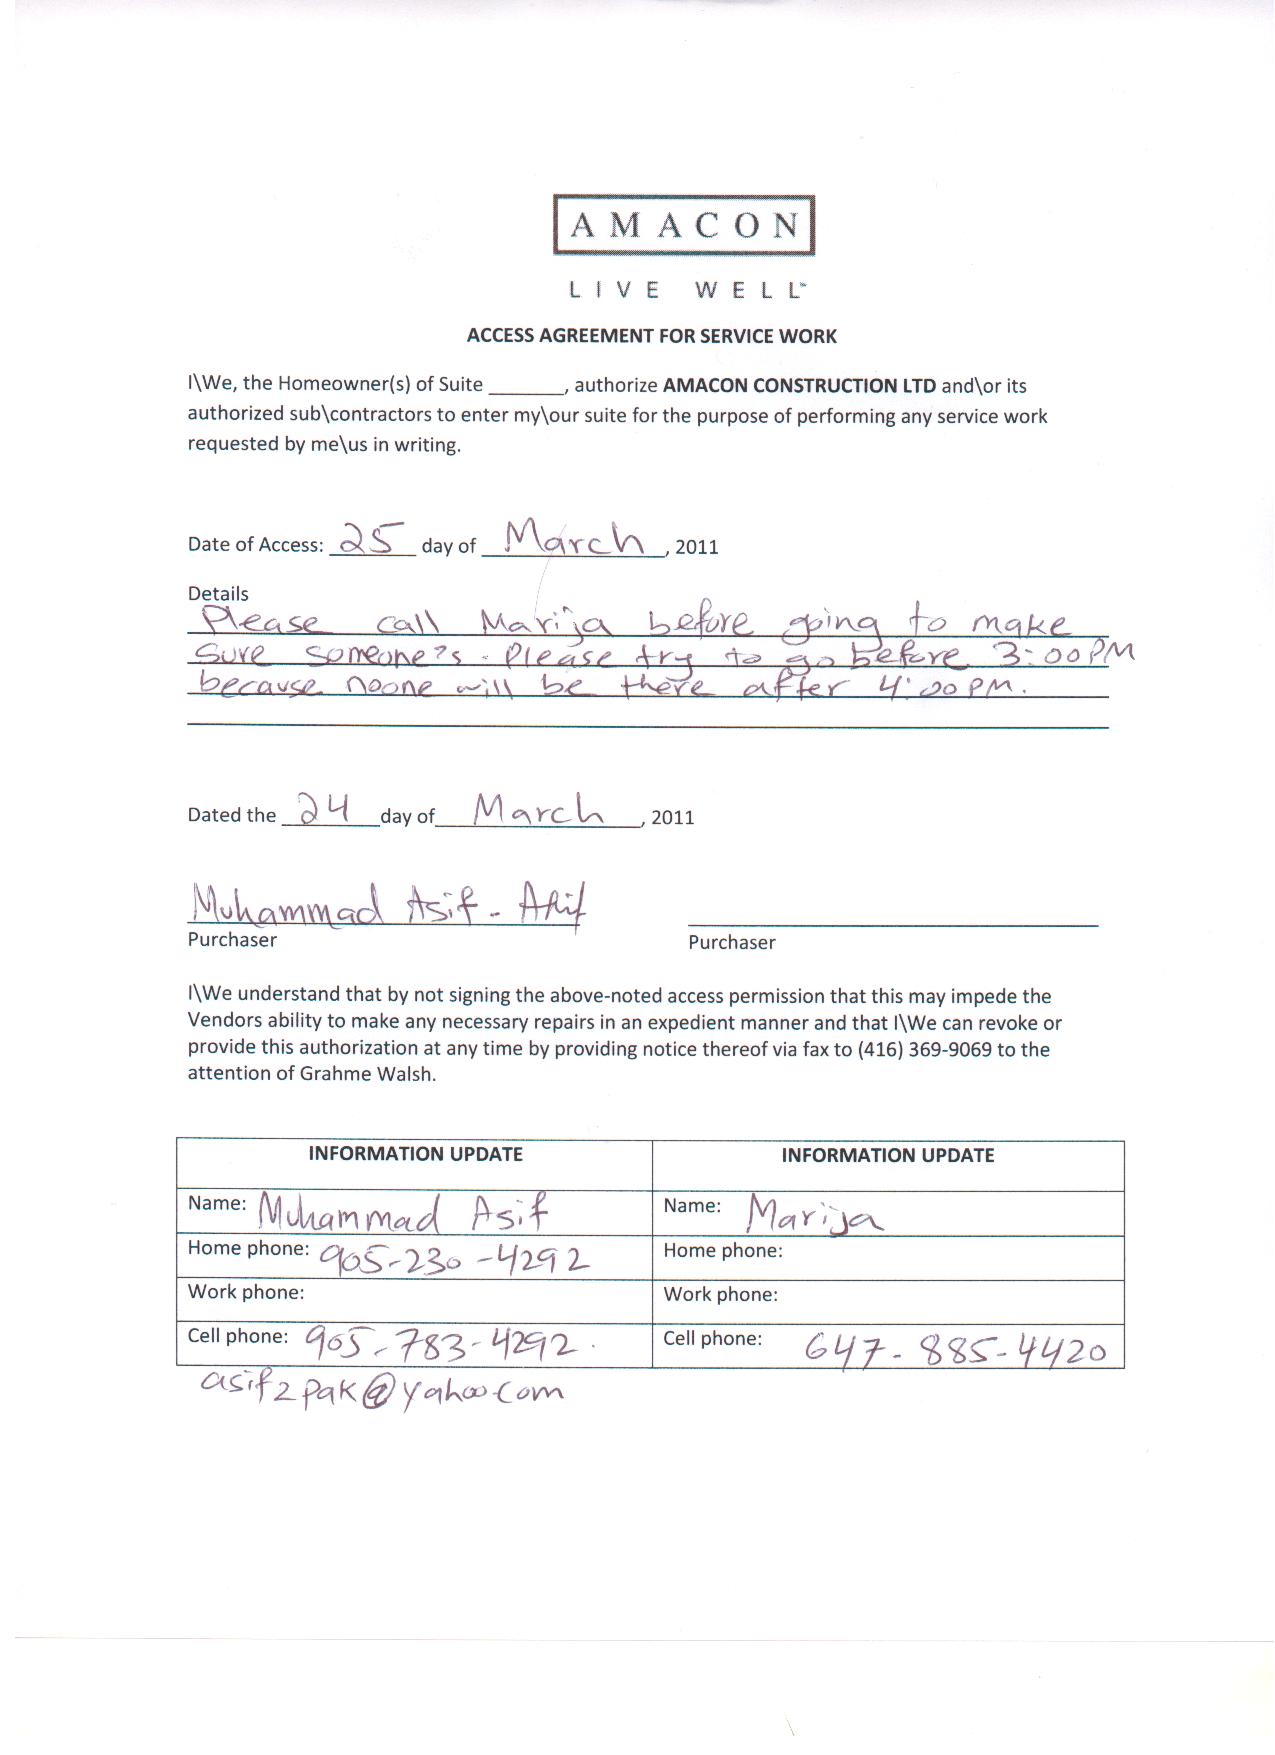 AMACON
LIVE WELL™
ACCESS AGREEMENT FOR SERVICE WORK
I\We, the Homeowner(s) of Suite _______, authorize AMACON CONSTRUCTION LTD and\or its
authorized sub\contractors to enter my\our suite for the purpose of performing any service work
requested by me\us in writing.
Date of Access: 25 day of March, 2011
Details
Please call Marija before going to make
sure someone?s. Please try to go before 3:00PM
because noone will be there after 4:00 PM.
Dated the 24 day of March, 2011
Muhammad Asif - Asif
Purchaser
Purchaser
I\We understand that by not signing the above-noted access permission that this may impede the
Vendors ability to make any necessary repairs in an expedient manner and that I\We can revoke or
provide this authorization at any time by providing notice thereof via fax to (416) 369-9069 to the
attention of Grahme Walsh.
INFORMATION UPDATE INFORMATION UPDATE
Name: Muhammad Asif Name: Marija
Home phone: 905-230-4292 Home phone:
Work phone: Work phone:
Cell phone: 905-783-4292. Cell phone: 647-885-4420
asif2pak@yahoo.com